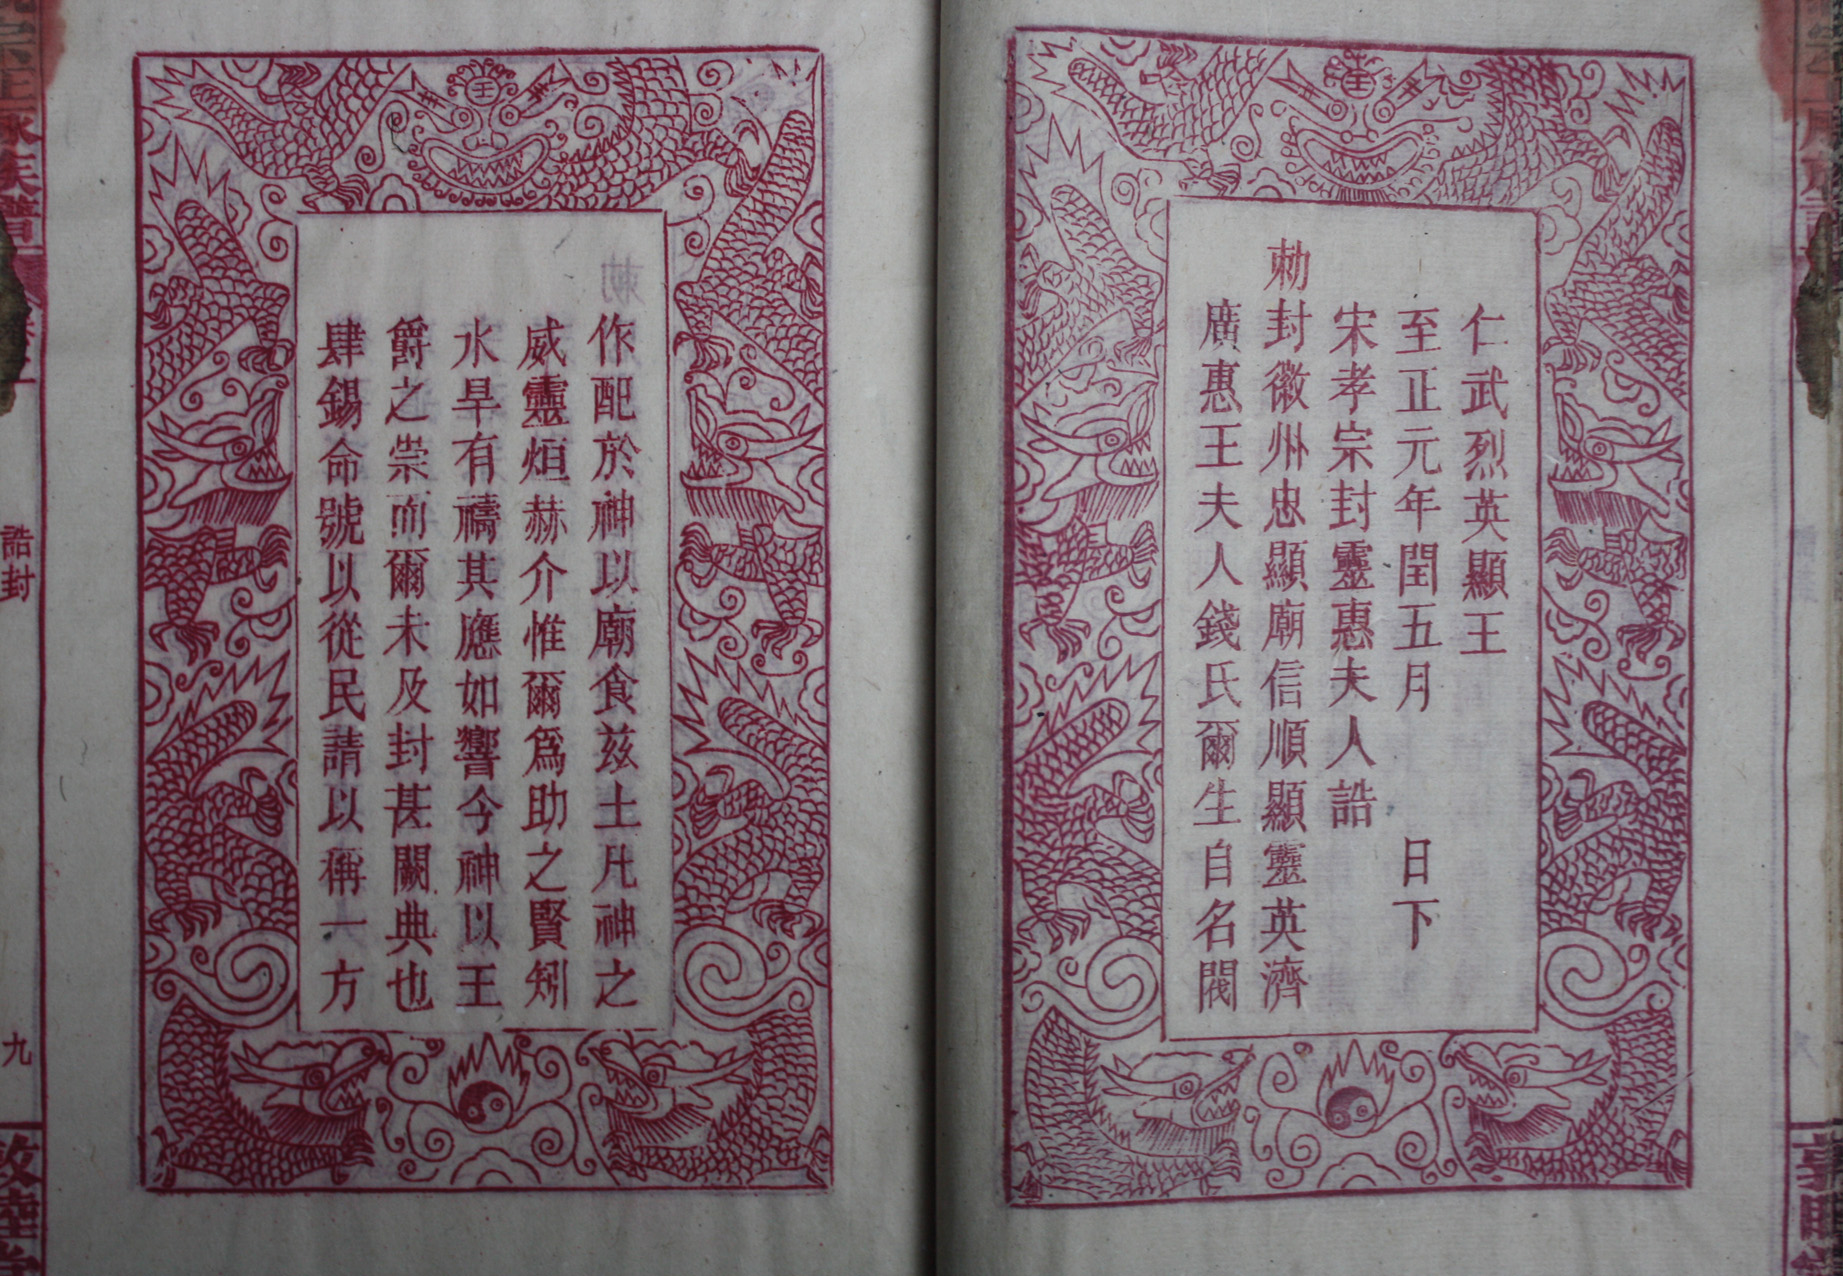 仁武烈英顯王
至正元年閏五月　日下
宋孝宗封靈惠夫人誥
勅封徽州忠顯廟信順顯靈英濟
廣惠王夫人錢氏爾生自名閥
作配於神以廟食茲土凡神之
威靈烜赫介惟爾爲助之賢矧
水旱有禱其應如響今神以王
爵之崇而爾未及封甚闕典也
肆錫命號以從民請以稱一方
誥封
九